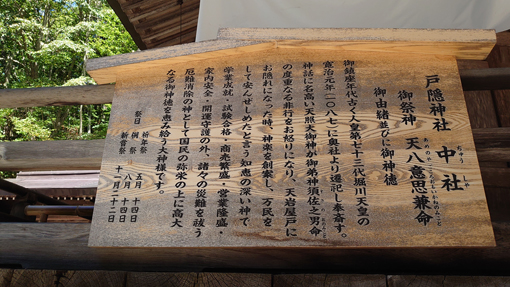 戸隠神社 中社
ちゅう しゃ
御祭神 天八意思兼命
あめのやごころおもいかねのみこと
御由緒並びに御神徳
御鎮座年古く人皇第七十三代堀川天皇の
寛治元年(一〇八七)奥社より遷祀し奉斎す。
神話に名高い天照大御神が御弟神須佐之男命
の度重なる非行をお怒りになり、天岩屋戸に
お隠れになった時、神楽を創案し、万民を
して安んぜしめたと言う知恵の深い神で
学業成就・試験合格・商売繁盛・営業隆盛・
家内安全・開運守護の神、諸々の災難を祓う
厄難消除の神として国家の弥栄の上に高大
なる御神徳を恵み給う大神様です。
祭日 祈年祭 四月 十四日
例祭 八月 十四日
新嘗祭 十一月二十二日